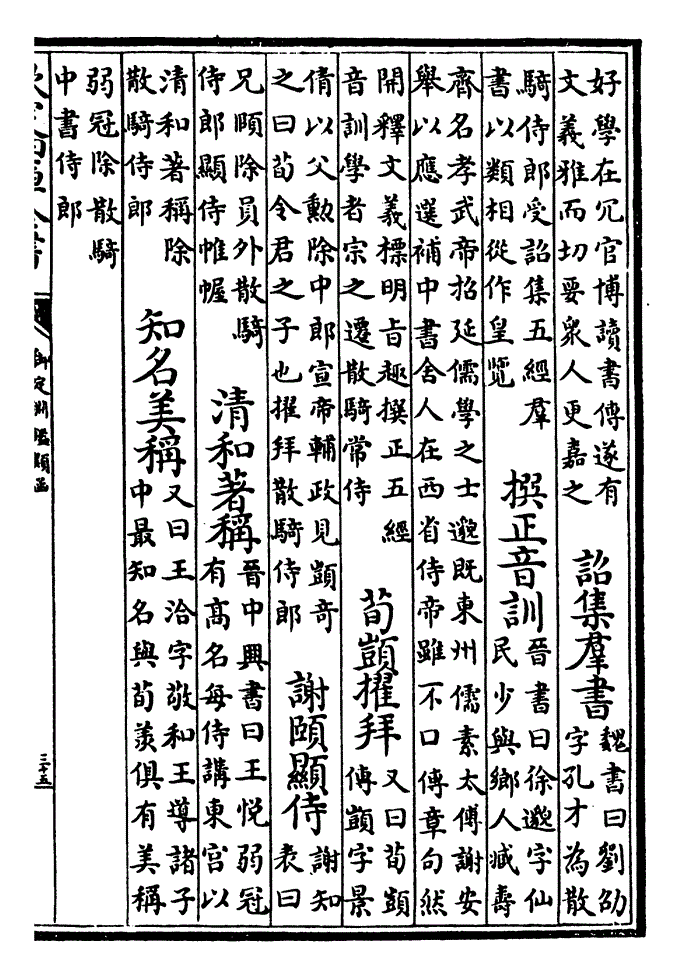 好學在冗官博讀書傳遂有
文義雅而切要眾人更嘉之
詔集羣書
魏書曰劉劭
字孔才為散
騎侍郎受詔集五經羣
書以類相從作皇覽
撰正音訓
晉書曰徐邈字仙
民少與鄉人臧壽
齊名孝武帝招延儒學之士邈既東州儒素太傅謝安
舉以應選補中書舍人在西省侍帝雖不口傳章句然
開釋文義標明旨趣撰正五經
音訓學者宗之遷散騎常侍
荀顗擢拜
又曰荀顗
傳顗字景
倩以父勳除中郎宣帝輔政見顗奇
之曰荀令君之子也擢拜散騎侍郎
謝頤顯侍
謝知
表曰
兄頤除員外散騎
侍郎顯侍帷幄
清和著稱
晉中興書曰王悅弱冠
有高名每侍講東宮以
清和著稱除
散騎侍郎
知名美稱
又曰王洽字敬和王導諸子
中最知名與荀羨俱有美稱
弱冠除散騎
中書侍郎
欽定四庫全書
御定淵鑑類函
三十五